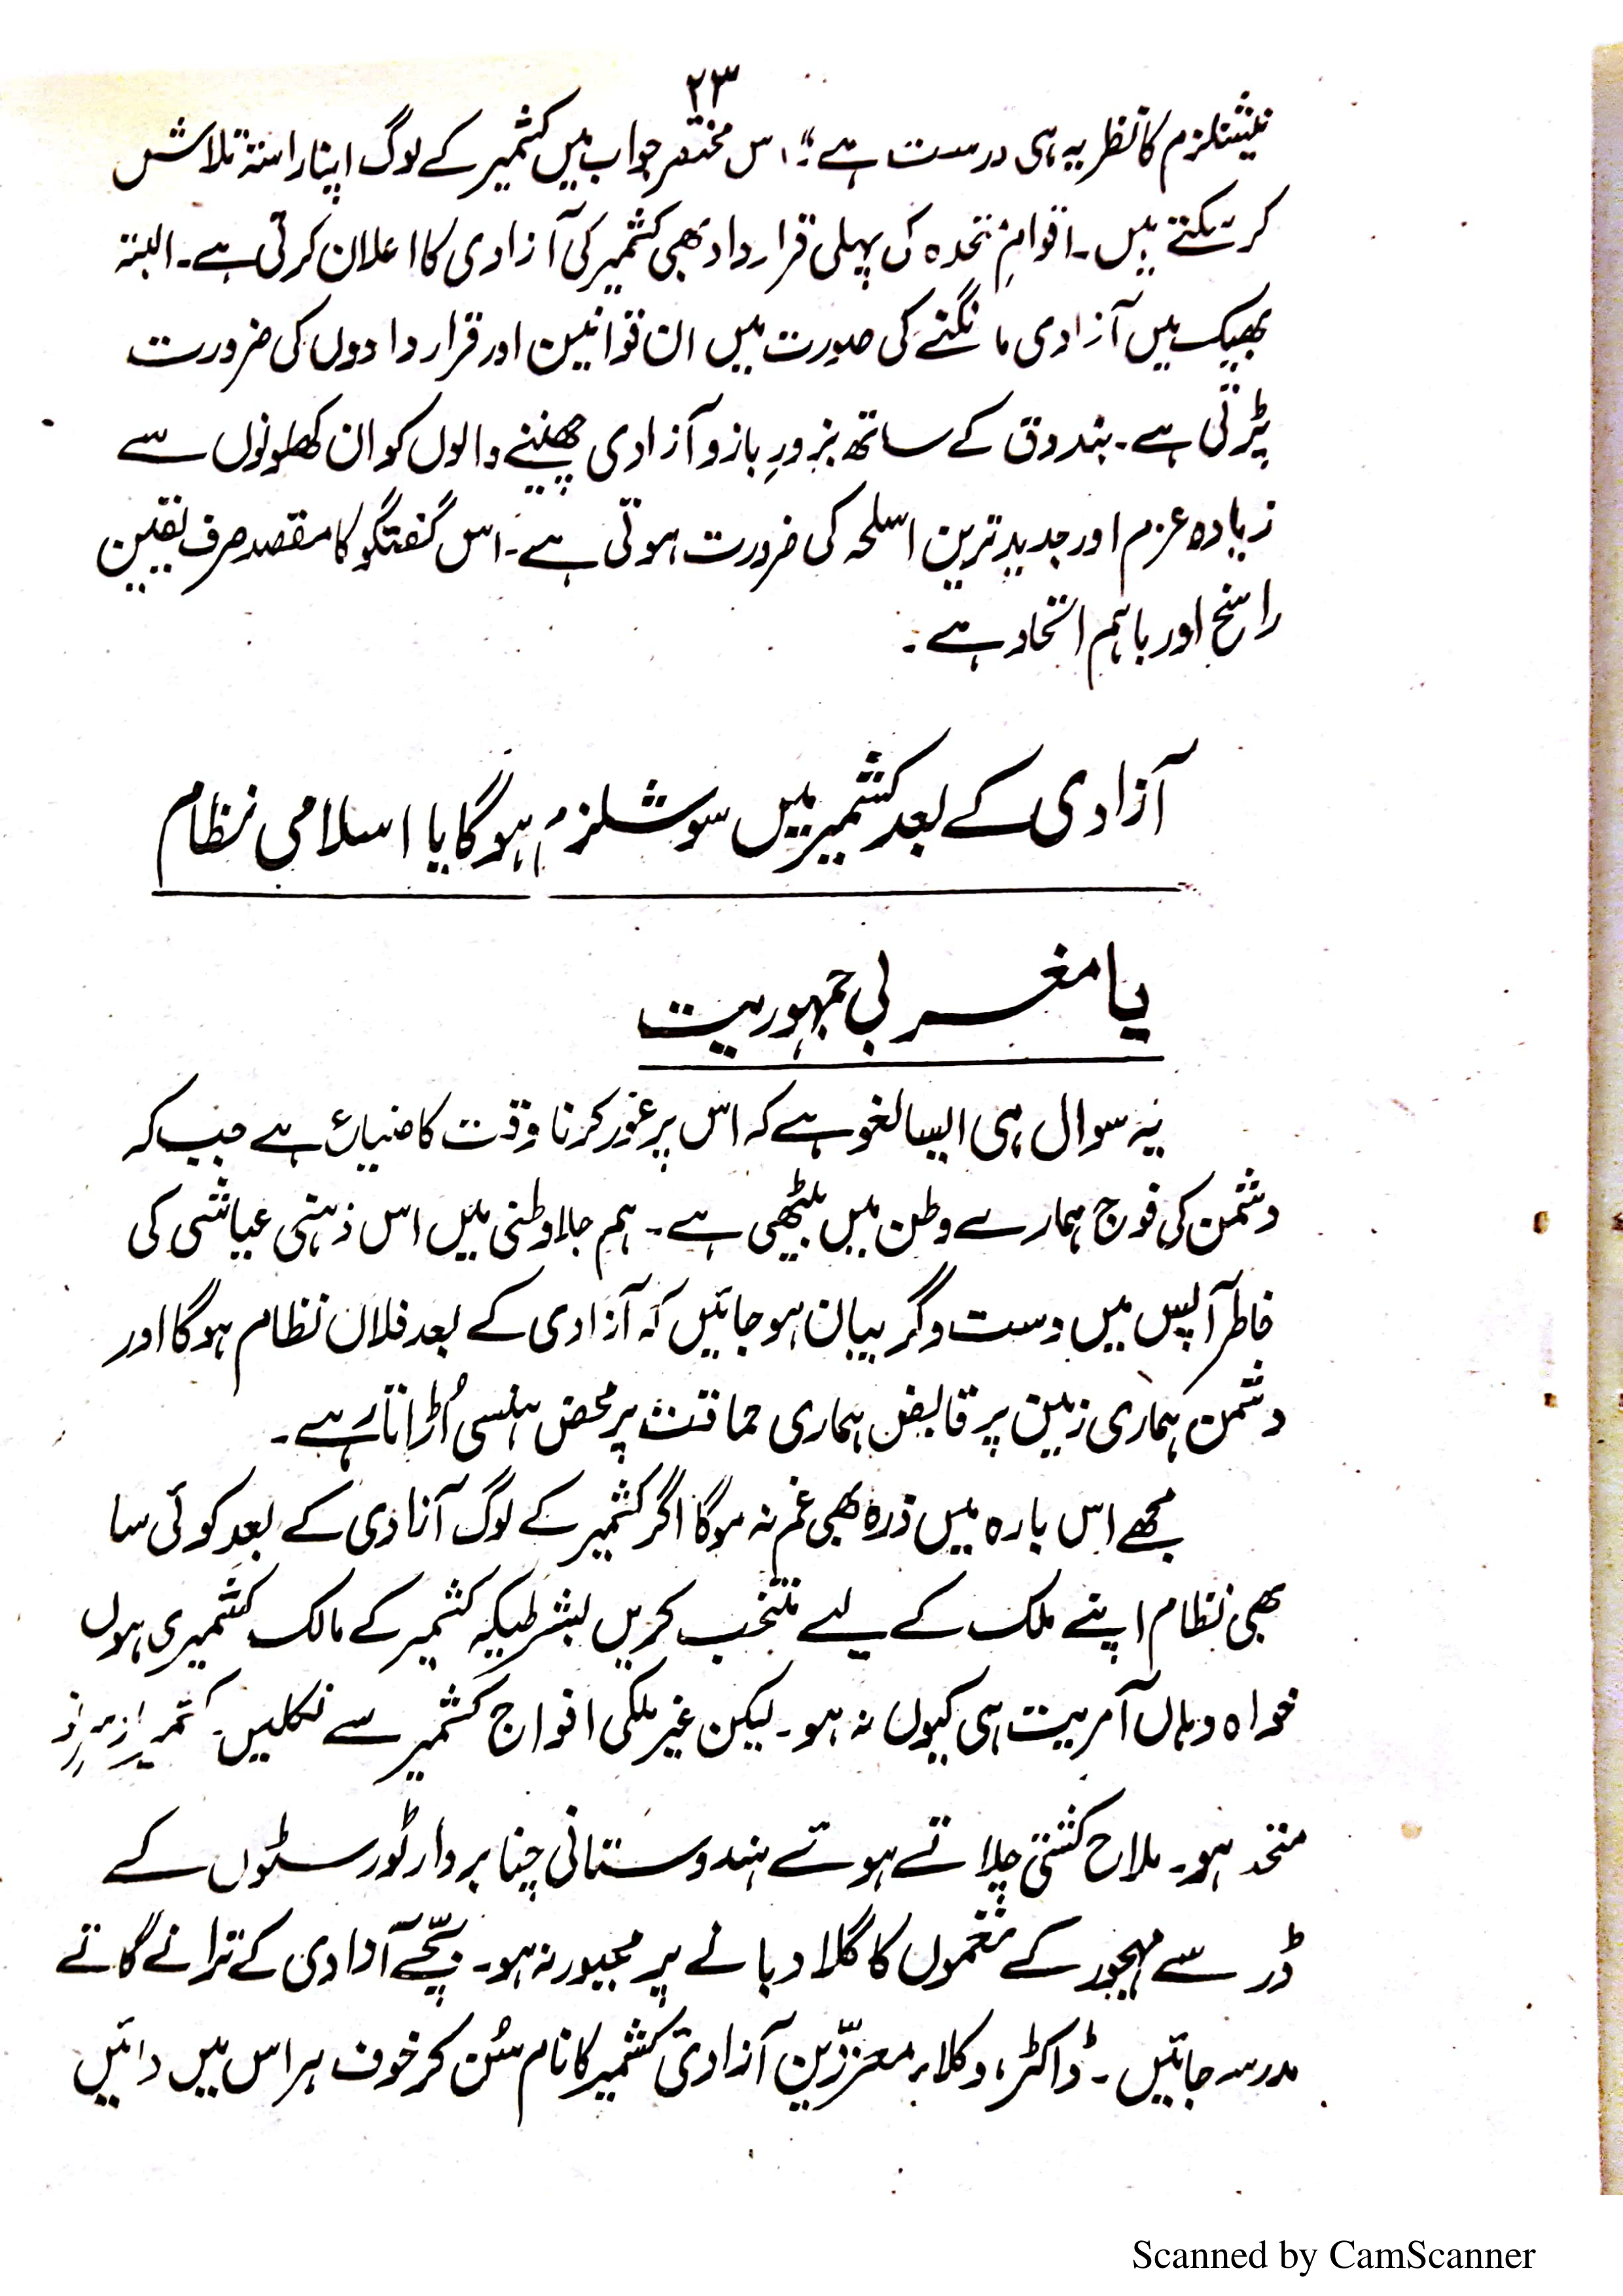 ۲۳
نیشنلزم کا نظریہ ہی درست ہے"۔ اس مختصر جواب میں کشمیر کے لوگ اپنا راستہ تلاش
کر سکتے ہیں۔ اقوامِ متحدہ کی پہلی قرارداد بھی کشمیر کی آزادی کا اعلان کرتی ہے۔ البتہ
بھیک میں آزادی مانگنے کی صورت میں ان قوانین اور قراردادوں کی ضرورت
پڑتی ہے۔ بندوق کے ساتھ بزورِ بازو آزادی چھیننے والوں کو ان کھلونوں سے
زیادہ عزم اور جدید ترین اسلحہ کی ضرورت ہوتی ہے۔ اس گفتگو کا مقصد صرف یقین
راسخ اور باہم اتحاد ہے۔
آزادی کے بعد کشمیر میں سوشلزم ہوگا یا اسلامی نظام
یا مغربی جمہوریت
یہ سوال ہی ایسا لغو ہے کہ اس پر غور کرنا وقت کا ضیاع ہے جب کہ
دشمن کی فوج ہمارے وطن میں بیٹھی ہے۔ ہم جلاوطنی میں اس ذہنی عیاشی کی
خاطر آپس میں دست و گریبان ہو جائیں کہ آزادی کے بعد فلاں نظام ہوگا اور
دشمن ہماری زمین پر قابض ہماری حماقت پر محض ہنسی اُڑاتا رہے۔
مجھے اس بارہ میں ذرہ بھی غم نہ ہوگا اگر کشمیر کے لوگ آزادی کے بعد کوئی سا
بھی نظام اپنے ملک کے لیے منتخب کریں بشرطیکہ کشمیر کے مالک کشمیری ہوں
خواہ وہاں آمریت ہی کیوں نہ ہو۔ لیکن غیر ملکی افواج کشمیر سے نکلیں۔ کشمیر
متحد ہو۔ ملاح کشتی چلاتے ہوئے ہندوستانی چتا بردار ٹورسٹوں کے
ڈر سے مہجور کے نغموں کا گلا دبانے پر مجبور نہ ہو۔ بچّے آزادی کے ترانے گاتے
مدرسہ جائیں۔ ڈاکٹر، وکلاء معززّین آزادی کشمیر کا نام سُن کر خوف ہراس میں دائیں
Scanned by CamScanner